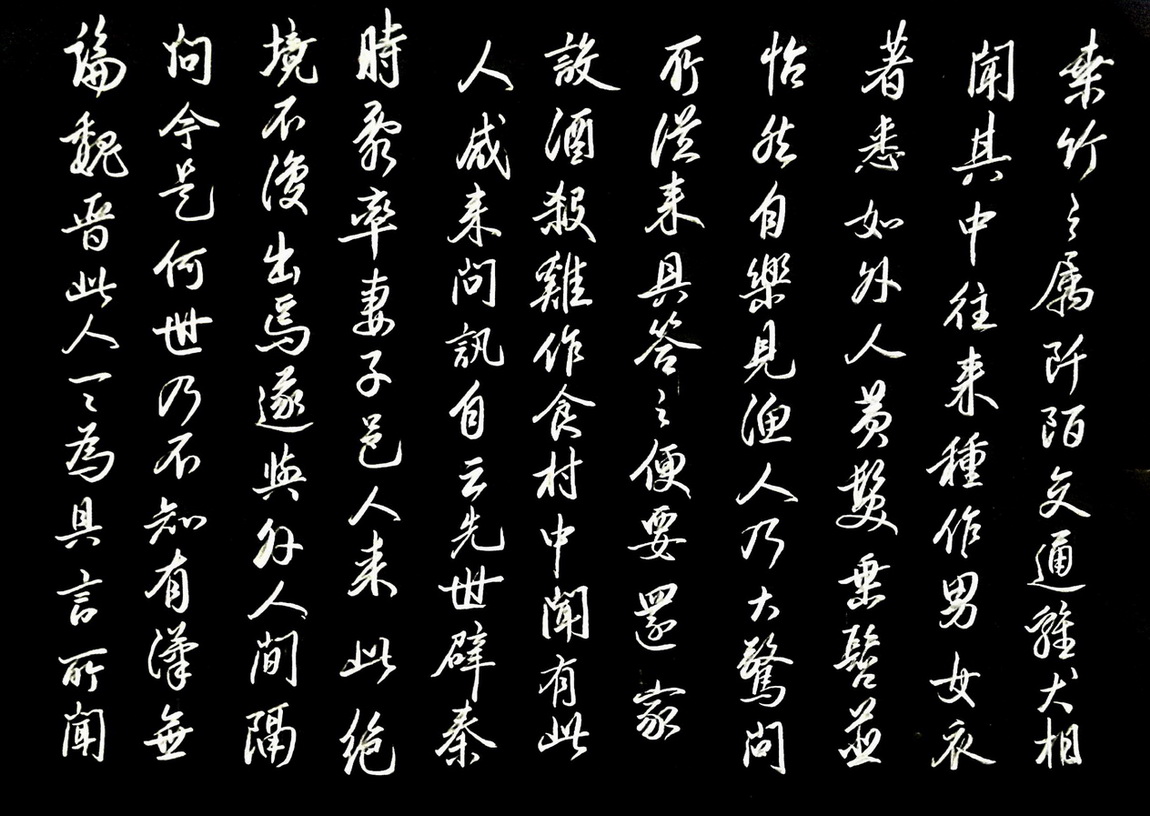 桑竹之属阡陌交通雞犬相
聞其中往来種作男女衣
著悉如外人黄髮垂髫並
怡然自樂見漁人乃大驚問
所從来具答之便要還家
設酒殺雞作食村中聞有此
人咸来問訊自云先世辟秦
時亂率妻子邑人来此絶
境不復出焉遂與外人間隔
問今是何世乃不知有漢無
論魏晋此人一一為具言所聞